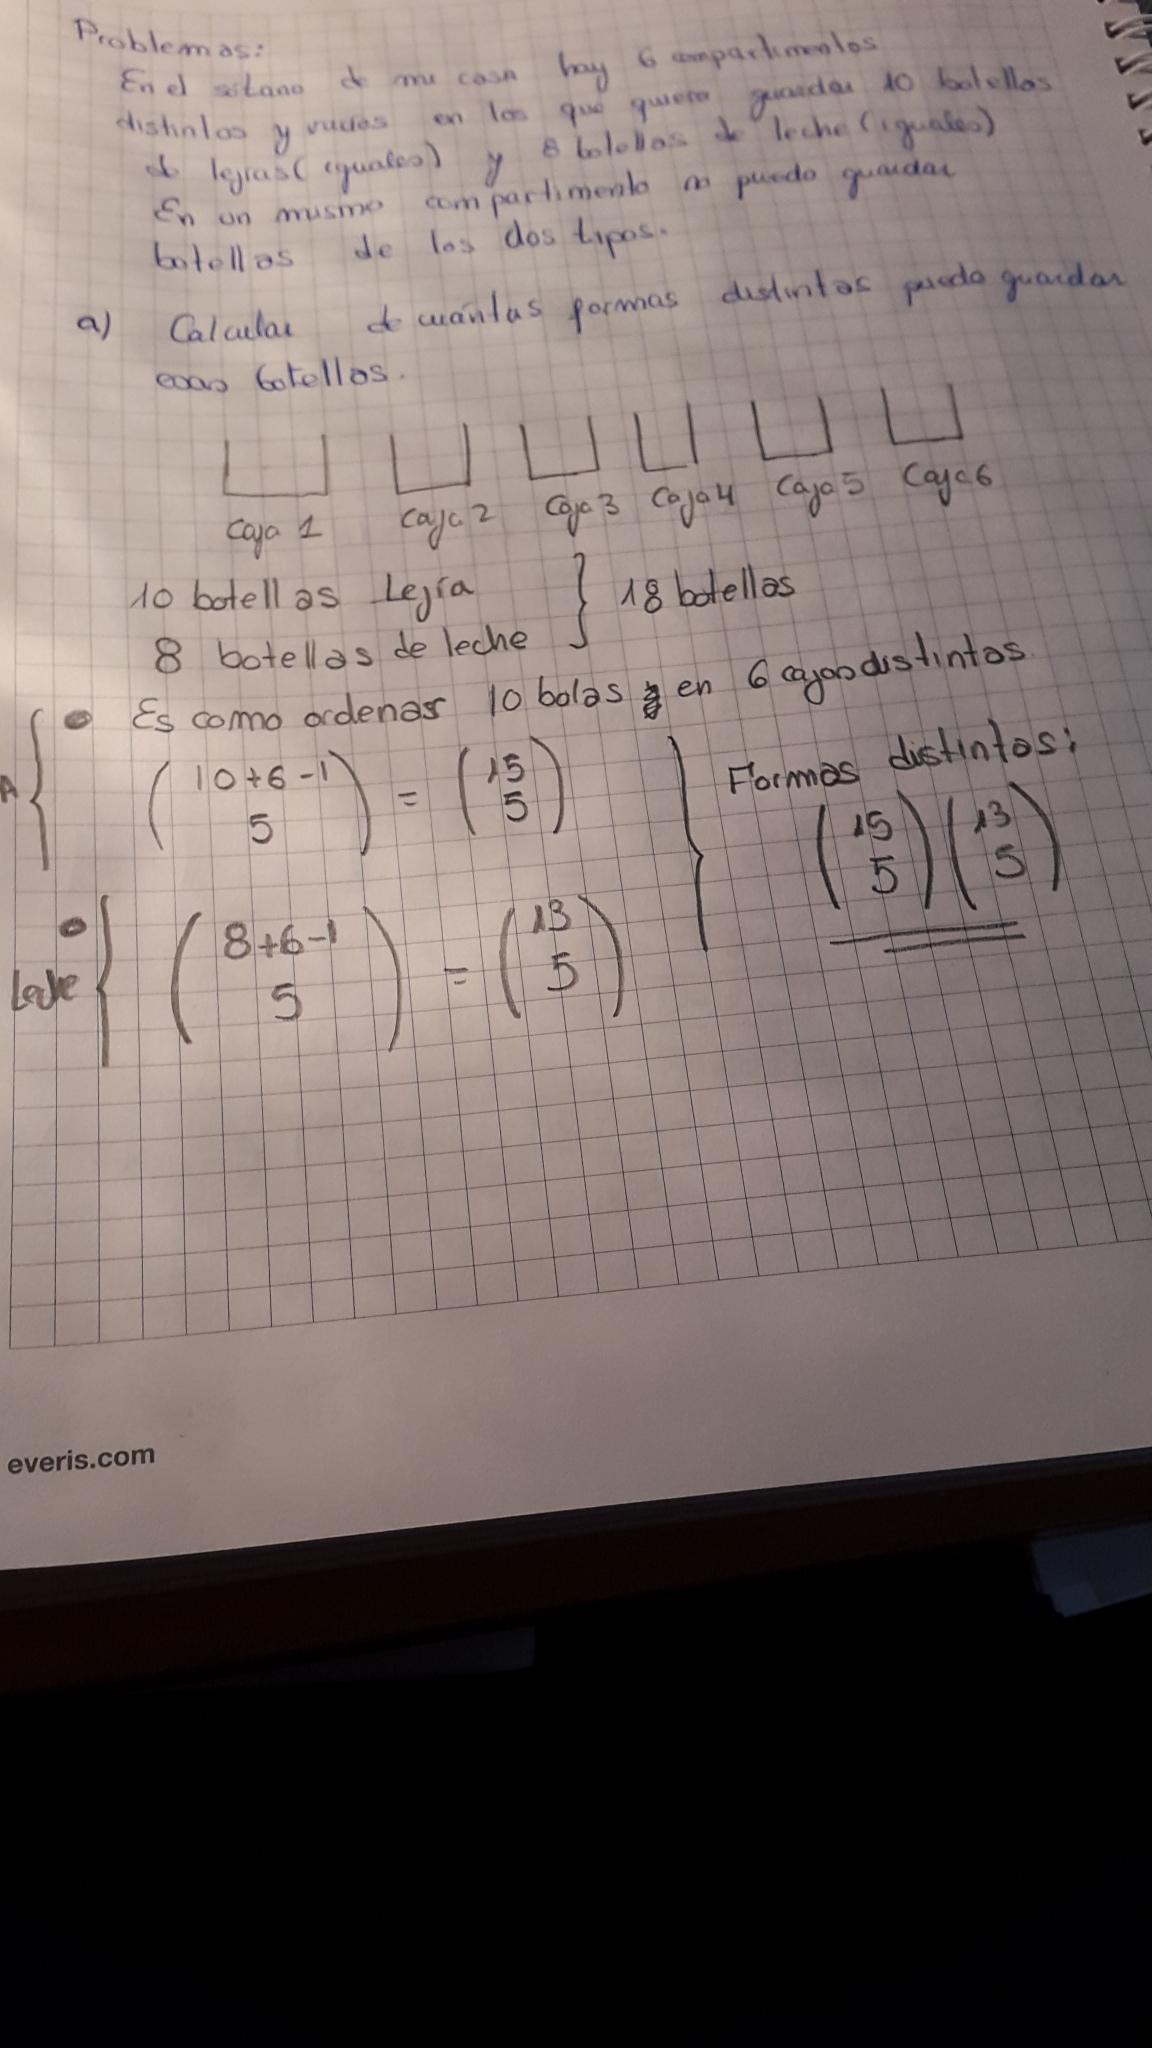 Problemas:
En el sótano de mi casa hay 6 compartimentos
distintos y vacíos en los que quiero guardar 10 botellas
de lejías (iguales) y 8 botellas de leche (iguales)
En un mismo compartimento no puedo guardar
botellas de los dos tipos.
a) Calcular de cuántas formas distintas puedo guardar
esas botellas.
Caja 1 Caja 2 Caja 3 Caja 4 Caja 5 Caja 6
10 botellas Lejía } 18 botellas
8 botellas de leche
Es como ordenas 10 bolas en 6 cajas distintas.
A { (10+6-1 5) = (15 5) } Formas distintas:
(15 5) (13 5)
Leche { (8+6-1 5) = (13 5)
everis.com